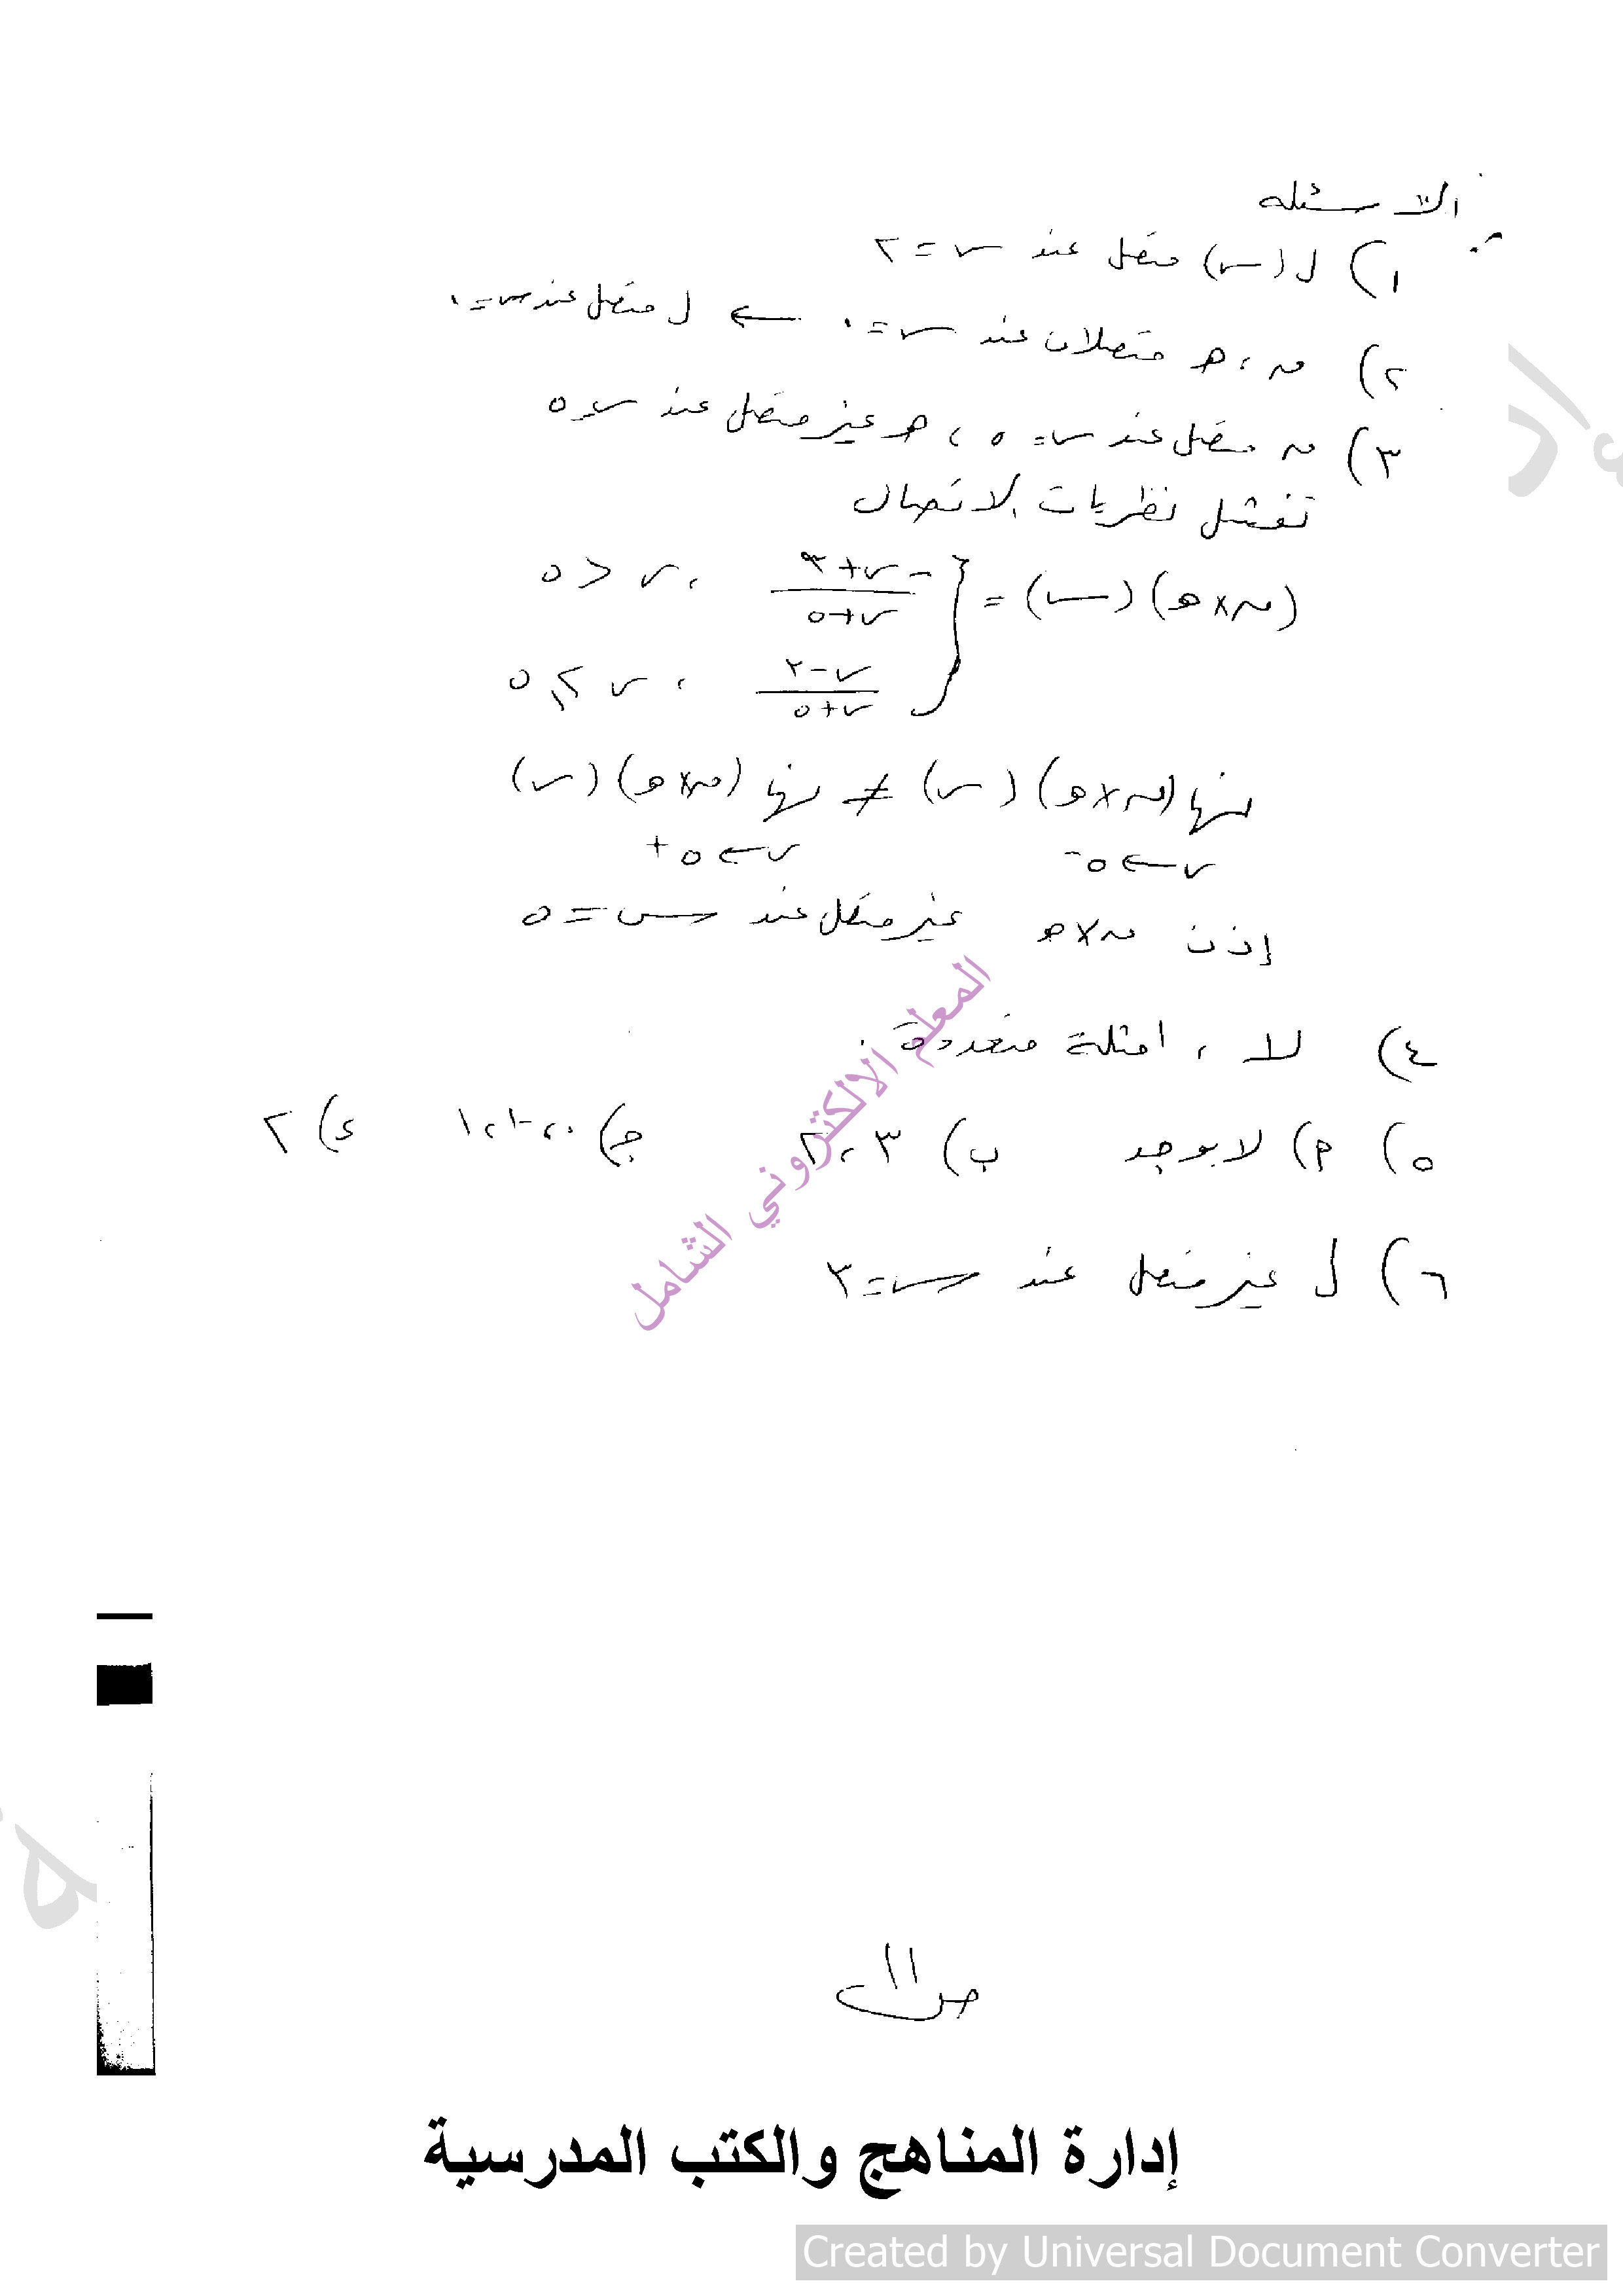 الاسئله
١) ل(س) متصل عند س = ٢
٢) ق ، هـ متصلان عند س = ٠ ← ل متصل عند س = ٠
٣) ق متصل عند س = ٥ ، هـ غير متصل عند س = ٥
تفشل نظريات الاتصال
(ق×هـ)(س) = { (-س+٣)/(س+٥) ، س < ٥
(س-٢)/(س+٥) ، س ≥ ٥
نها (ق×هـ)(س) ≠ نها (ق×هـ)(س)
س←٥- س←٥+
إذن ق×هـ غير متصل عند س = ٥
٤) لا ، امثلة متعددة .
٥) أ) لا يوجد ب) ٣ ، ٢ ج) ٠ ، -١ ، ١ د) ٢
٦) ل غير متصل عند س = ٣
المعلم الالكتروني الشامل
ص ١١
إدارة المناهج والكتب المدرسية
Created by Universal Document Converter